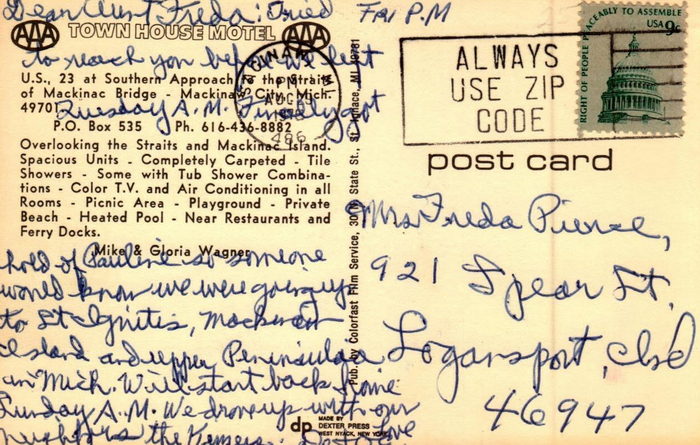 Dear Aunt Freda: Tried Fri P.M
AAA TOWN HOUSE MOTEL AAA
to reach you before we left
U.S., 23 at Southern Approach to the Straits
of Mackinac Bridge - Mackinaw City, Mich.
49701
Tuesday A.M. Finally got
P.O. Box 535 Ph. 616-436-8882
Overlooking the Straits and Mackinac Island.
Spacious Units - Completely Carpeted - Tile
Showers - Some with Tub Shower Combina-
tions - Color T.V. and Air Conditioning in all
Rooms - Picnic Area - Playground - Private
Beach - Heated Pool - Near Restaurants and
Ferry Docks.
Mike & Gloria Wagner
hold of Pauline so someone
would know we were going up
to St Ignitis, Mackinan
Island and upper Peninsulaa
in Mich. Will start back home
Sunday A.M. We drove up with our
the Love
SAGINAW
PM
AUG
486
ALWAYS
USE ZIP
CODE
RIGHT OF PEOPLE PEACEABLY TO ASSEMBLE
USA 9c
post card
Pub. by Colorfast Film Service, 30 N State St., St. Ignace, MI 49781
Mrs Freda Pierce,
921 Spear St.
Logansport, Ind
46947
dp MADE BY
DEXTER PRESS
WEST NYACK, NEW YORK